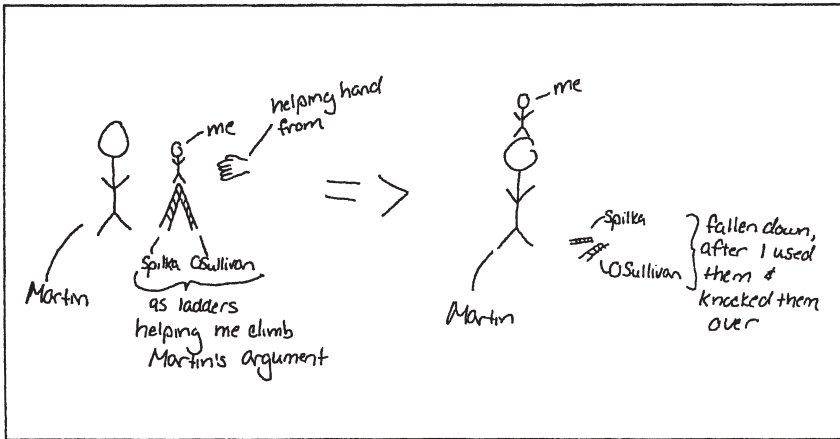 me
helping hand
from
Spilka OSullivan
Martin
as ladders
helping me climb
Martin's argument
me
Spilka
OSullivan
fallen down,
after I used
them &
knocked them
over
Martin